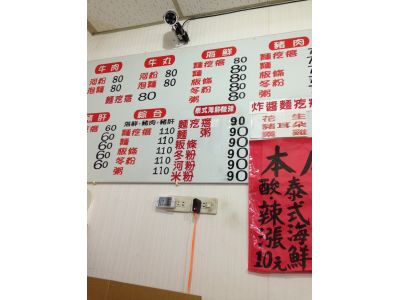 牛肉
河粉 80
泡麵 80
牛丸
河粉 80
泡麵 80
麵疙瘩 80
海鮮
麵疙瘩 80
麵 80
粄條 80
冬粉 80
粥 80
豬肉
麵疙瘩
麵
粄條
冬粉
粥
豬肝
60
60
60
60
60
綜合
海鮮・豬肉・豬肝
麵疙瘩 110
麵 110
粄條 110
冬粉 110
粥 110
泰式海鮮酸辣
麵疙瘩 90
麵 90
粄條 90
冬粉 90
河粉 90
米粉 90
粥
炸醬麵疙
花生
豬耳朵
本
泰式海鮮
酸辣漲
10元